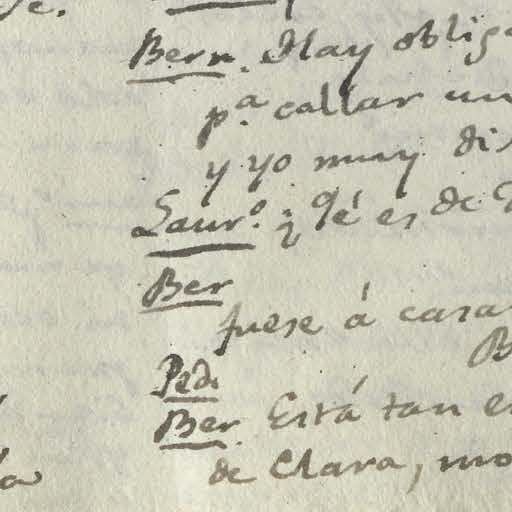 Bern. Hay oblig
p.ª callar un
y yo muy dis
Laur.º ¿Qé es de
Ber
fuese á casar
Ped.
Ber. Está tan en
de Clara, mo